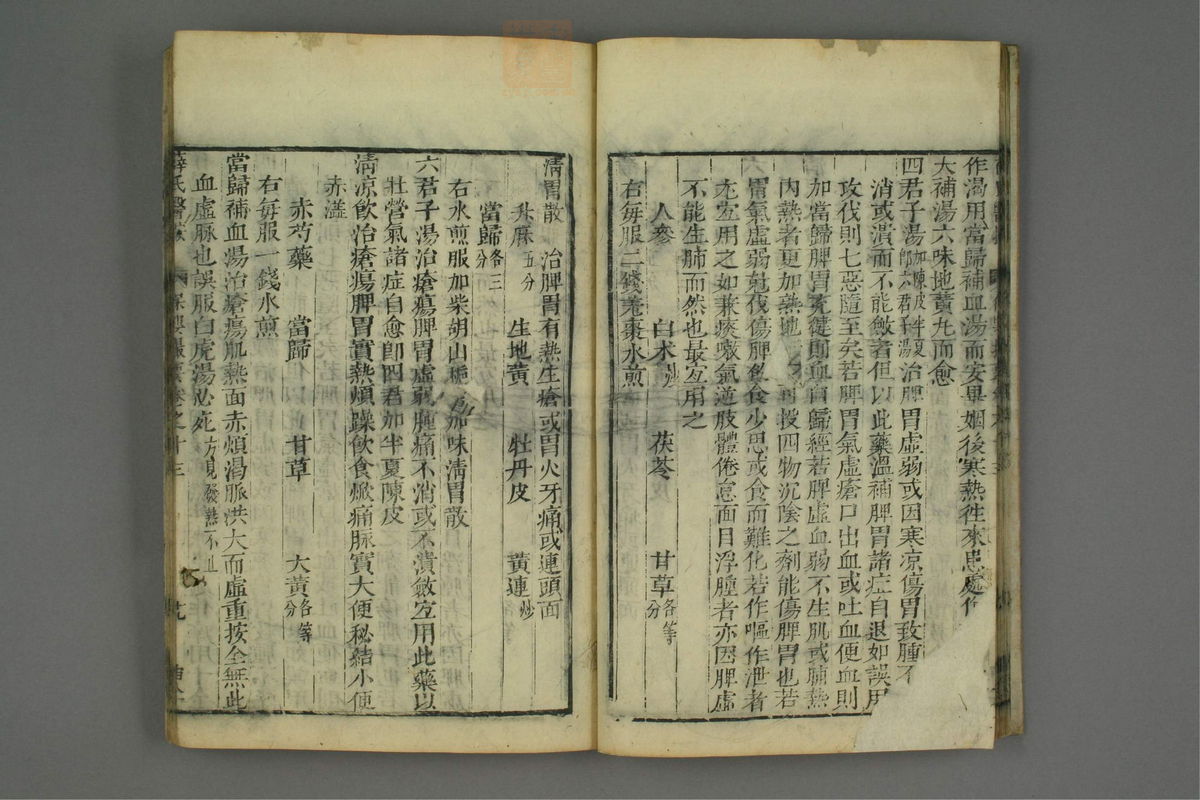 作渴用當歸補血湯而安畢姻後寒熱往來患處作
大補湯六味地黃丸而愈
四君子湯加陳皮半夏即六君子湯治脾胃虛弱或因寒涼傷胃致腫不
消或潰而不能斂者但以此藥溫補脾胃諸症自退如誤用
攻伐則七惡隨至矣若脾胃氣虛瘡口出血或吐血便血則
加當歸脾胃充健則血自歸經若脾虛血弱不生肌或脯熱
內熱者更加熟地 若投四物沉陰之劑能傷脾胃也若
胃氣虛弱尅伐傷脾飲食少思或食而難化若作嘔作泄者
尤宜用之如兼痰嗽氣逆肢體倦怠面目浮腫者亦因脾虛
不能生肺而然也最宜用之
人參 白术炒 茯苓 甘草各等分
右每服二錢姜棗水煎
清胃散 治脾胃有熱生瘡或胃火牙痛或連頭面
升麻五分 生地黃 牡丹皮 黃連炒
當歸各三分
右水煎服加柴胡山梔 加味清胃散
六君子湯治瘡瘍脾胃虛弱腫痛不消或不潰斂宜用此藥以
壯營氣諸症自愈即四君加半夏陳皮
清涼飲治瘡瘍脾胃實熱煩躁飲食焮痛脉實大便秘結小便
赤濇
赤芍藥 當歸 甘草 大黃各等分
右每服一錢水煎
當歸補血湯治瘡瘍肌熱面赤煩渴脈洪大而虛重按全無此
血虛脉也誤服白虎湯必死方見發熱不止
薛氏醫案 保嬰撮要卷之十三 廿九